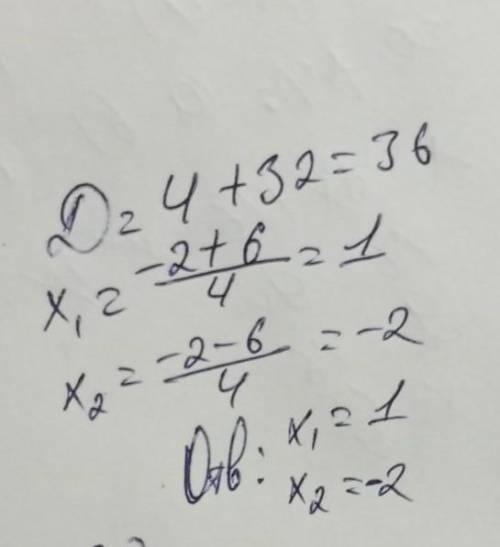 D = 4 + 32 = 36
x₁ = (-2 + 6)/4 = 1
x₂ = (-2 - 6)/4 = -2
Отв: x₁ = 1
x₂ = -2